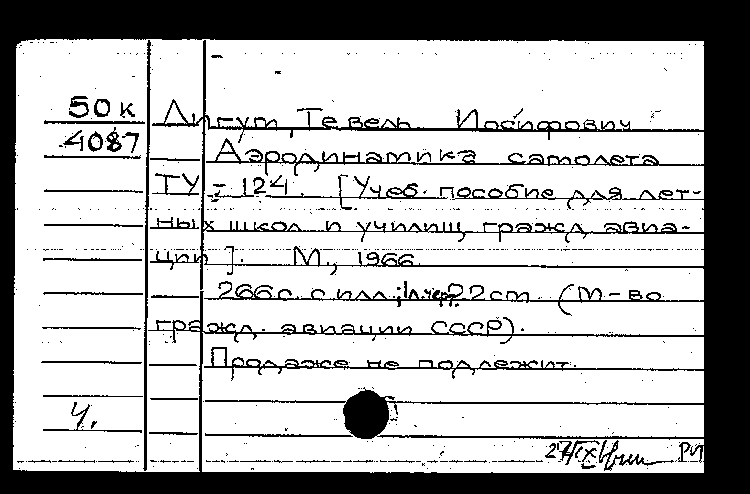 50к Лигут, Тевель Иосифович
4087 Аэродинамика самолета
ТУ-124. [Учеб. пособие для лет-
ных школ и училищ гражд. авиа-
ции]. М., 1966.
266с. с илл.; 1л. черт. 22см (М-во
гражд. авиации СССР).
Продаже не подлежит.